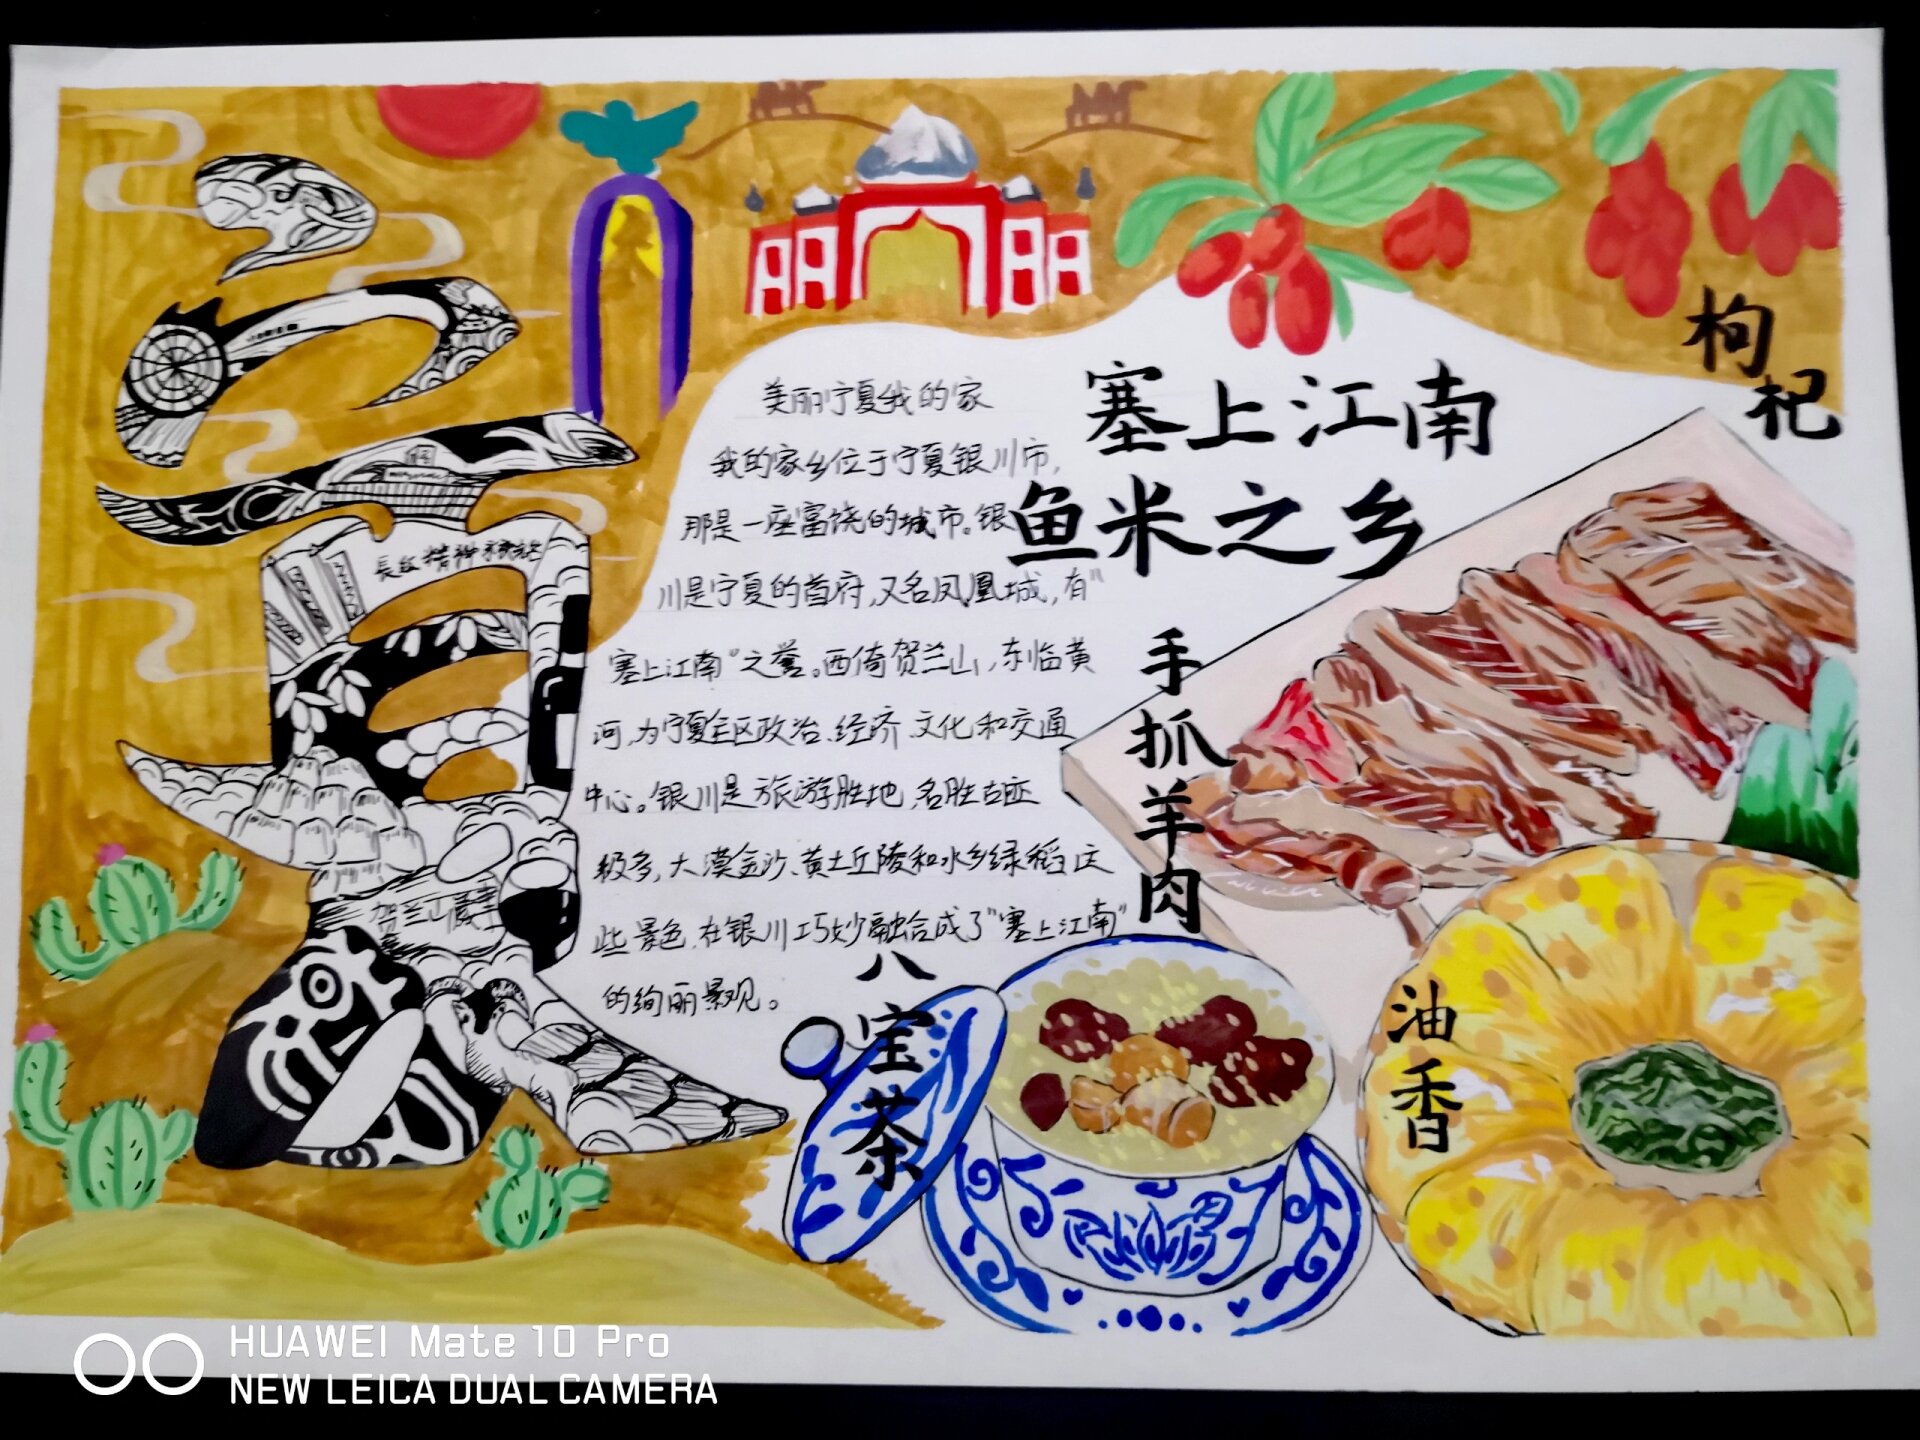 宁夏
長征精神永放
贺兰山岩羊
枸杞
塞上江南
鱼米之乡
美丽宁夏我的家
我的家乡位于宁夏银川市,
那是一座富饶的城市。银
川是宁夏的首府,又名凤凰城,有“
塞上江南”之誉。西倚贺兰山,东临黄
河,为宁夏全区政治、经济、文化和交通
中心。银川是旅游胜地,名胜古迹
极多,大漠金沙、黄土丘陵和水乡绿稻,这
些景色,在银川巧妙融合成了“塞上江南”
的绚丽景观。
手抓羊肉
八宝茶
油香
HUAWEI Mate 10 Pro
NEW LEICA DUAL CAMERA